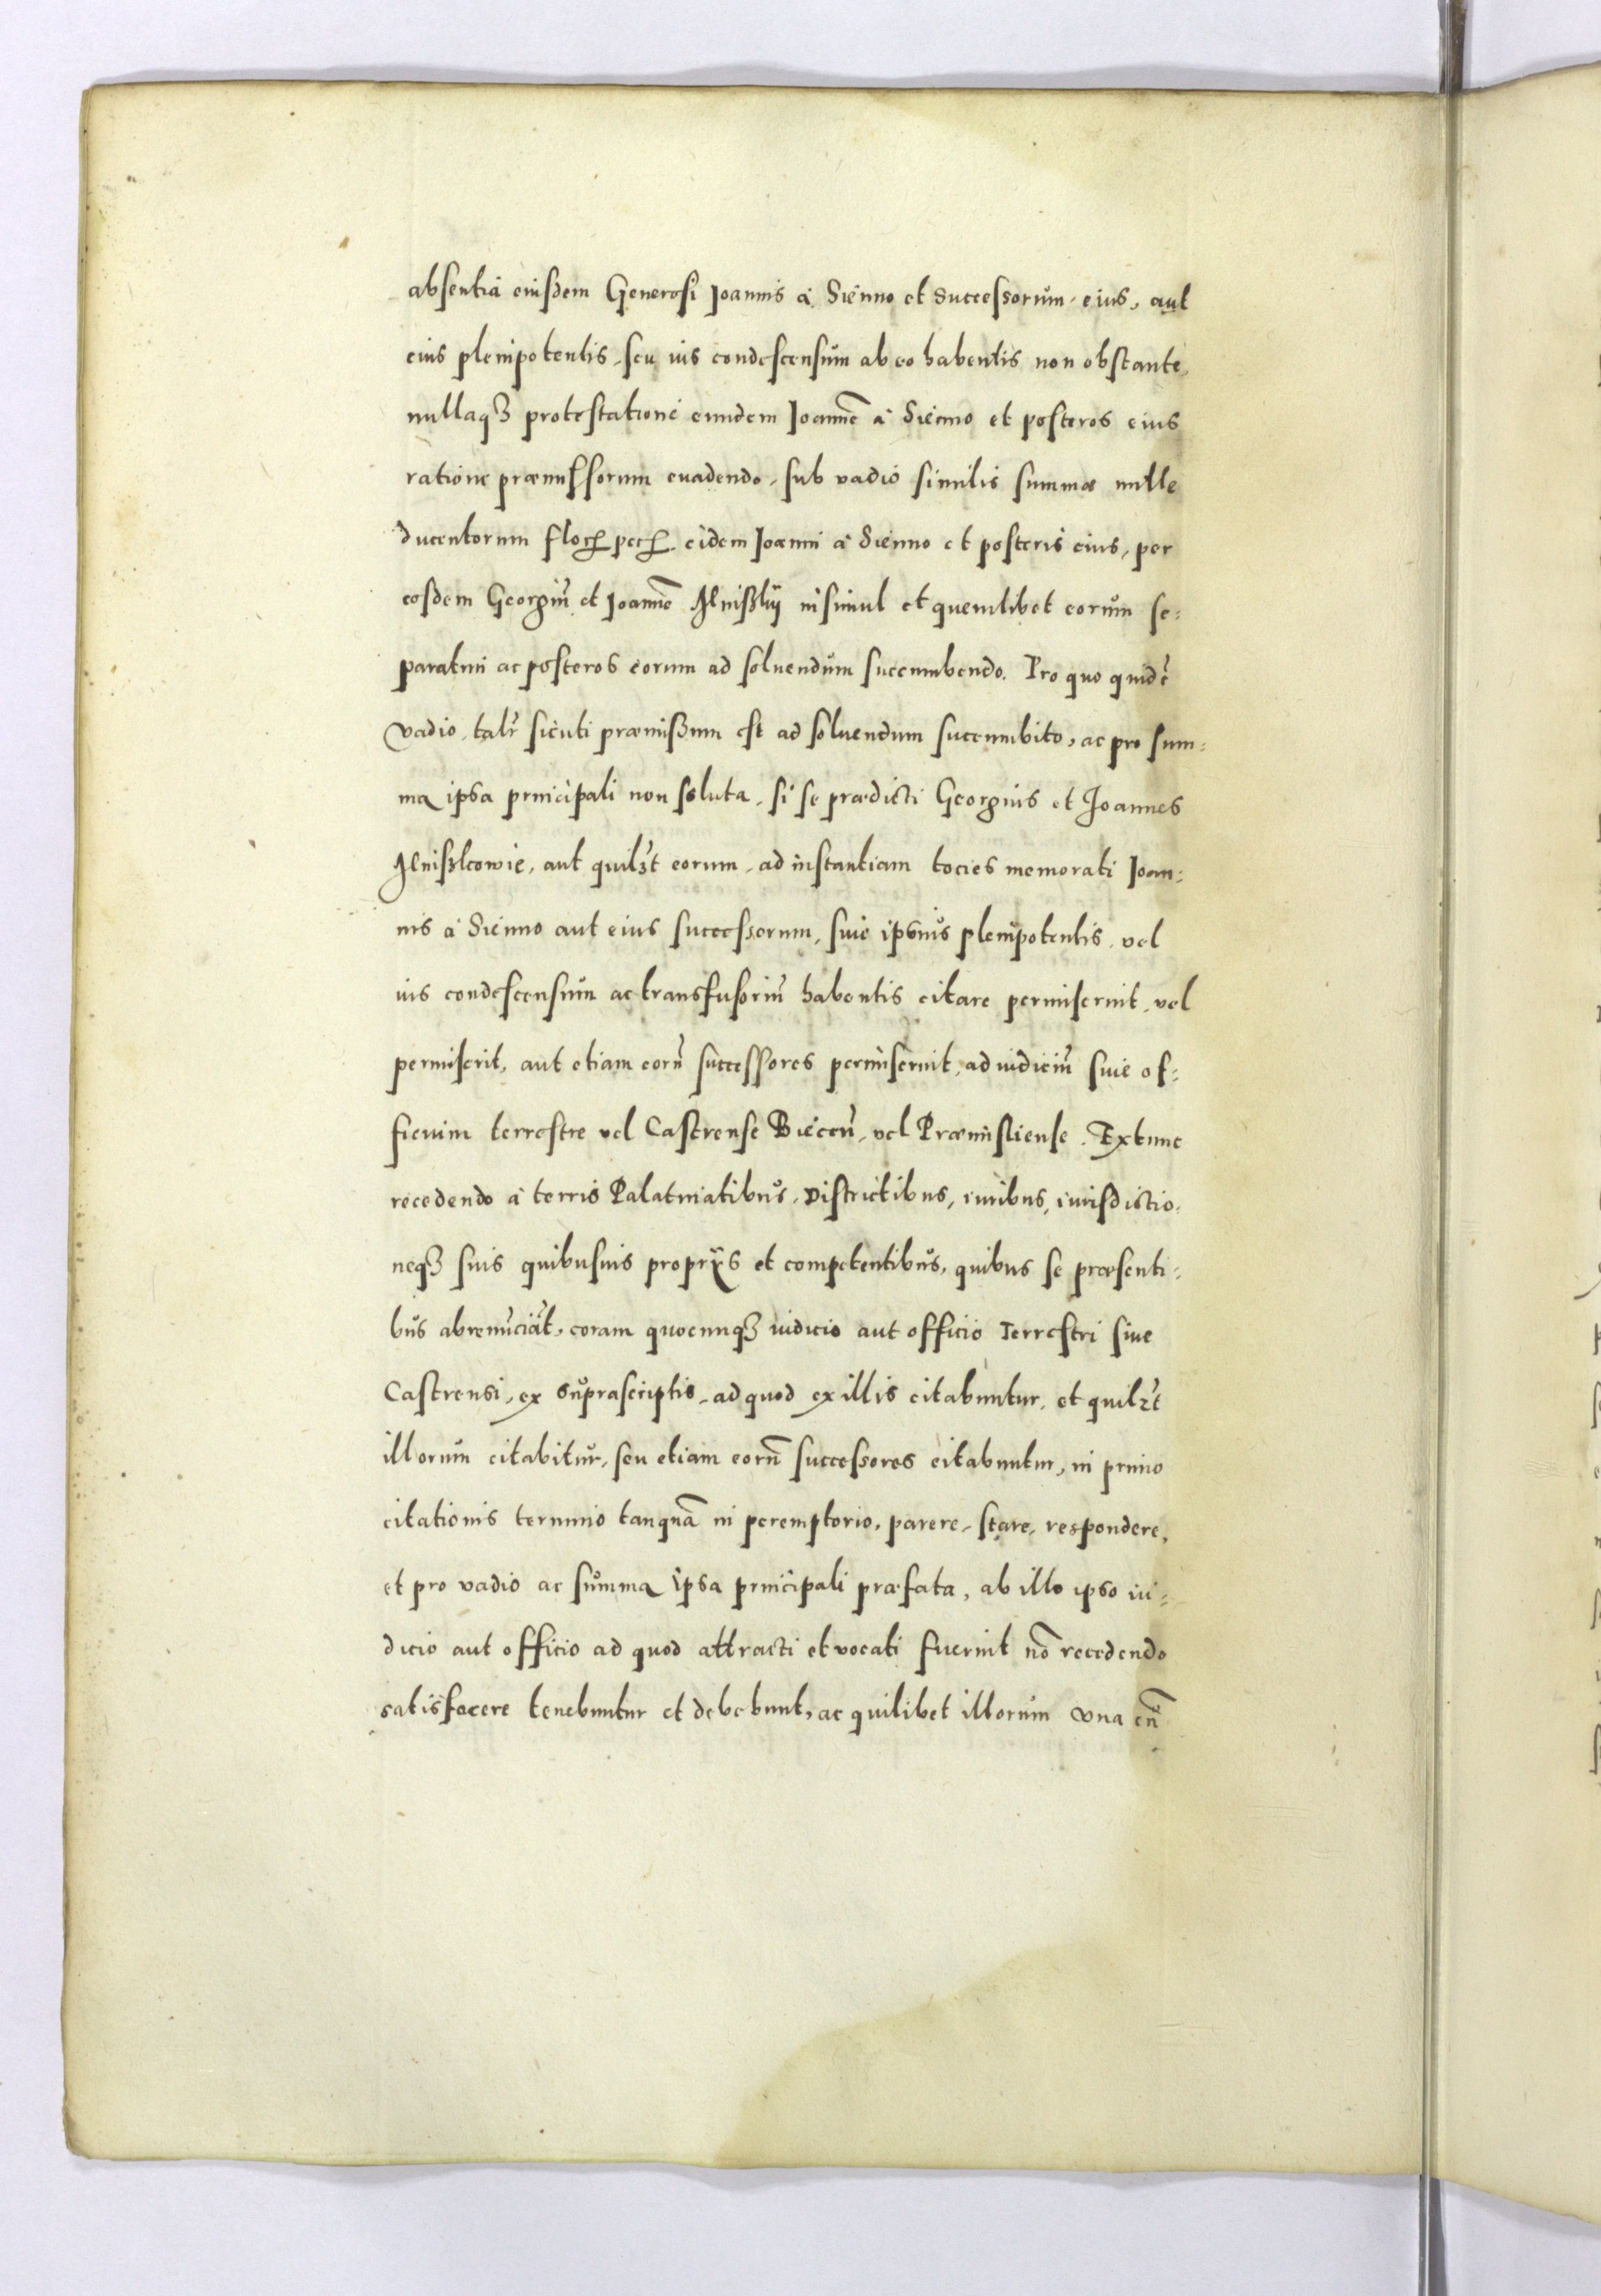 absentia eiusdem Generosi Joannis à Sienno et Successorum eius, aut
eius plenipotentis, seu ius condescensum ab eo habentis non obstante,
nullaqꝫ protestatione eundem Joannē à Sienno et posteros eius
ratione præmissorum euadendo, sub vadio similis summæ mille
ducentorum floꝝ pecꝝ eidem Joanni à Sienno et posteris eius, per
eosdem Georgiū et Joannē insimul et quemlibet eorum se⸗
paratim ac posteros eorum ad soluendum succumbendo. Pro quo quidē
vadio, talr̃ sicuti præmissum est ad soluendum succumbito, ac pro sum⸗
ma ipsa principali non soluta, si se prædicti Georgius et Joannes
aut quilꝫt eorum, ad instantiam tocies memorati Joan⸗
nis à Sienno aut eius successorum, siue ipsius plenipotentis, vel
ius condescensum ac transfusoriū habentis citare permiserint, vel
permiserit, aut etiam eorū successores permiserint, ad iudiciū siue of⸗
ficium terrestre vel Castrense Biecen̄, vel Præmisliense. Extunc
recedendo à terris Palatinatibus, Districtibus, iuribus, iurisdictio⸗
neqꝫ suis quibusuis proprijs et competentibus, quibus se præsenti⸗
bus abrenūciāt, coram quocunqꝫ iudicio aut officio Terrestri siue
Castrensi, ex suprascriptis, ad quod ex illis citabuntur, et quilꝫt
illorum citabitur, seu etiam eorū successores citabuntur, in primo
citationis termino tanquā in peremptorio, parere, stare, respondere,
et pro vadio ac summa ipsa principali præfata, ab illo ipso iu⸗
dicio aut officio ad quod attracti et vocati fuerint nō recedendo
satisfacere tenebuntur et debebunt, ac quilibet illorum vna cū